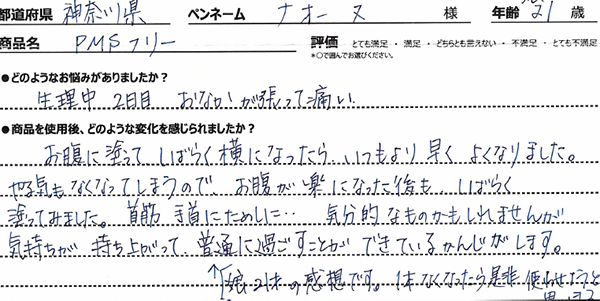 都道府県 神奈川県 ペンネーム ナオーヌ 様 年齢 21 歳
商品名 PMSフリー 評価 とても満足 ・ 満足 ・ どちらとも言えない ・ 不満足 ・ とても不満足
*○で囲んでお選びください。
●どのようなお悩みがありましたか？
生理中 2日目 おなかが張って痛い
●商品を使用後、どのような変化を感じられましたか？
お腹に塗って しばらく横になったら…いつもより早く よくなりました。
やる気もなくなってしまうので、お腹が楽になった後も… しばらく
塗ってみました。首筋 手首にためしに… 気分的なものかもしれませんが
気持ちが 持ち上がって、普通に過ごすことが できているかんじがします。
↑娘 21才の感想です。1本なくなったら是非、使わせようと